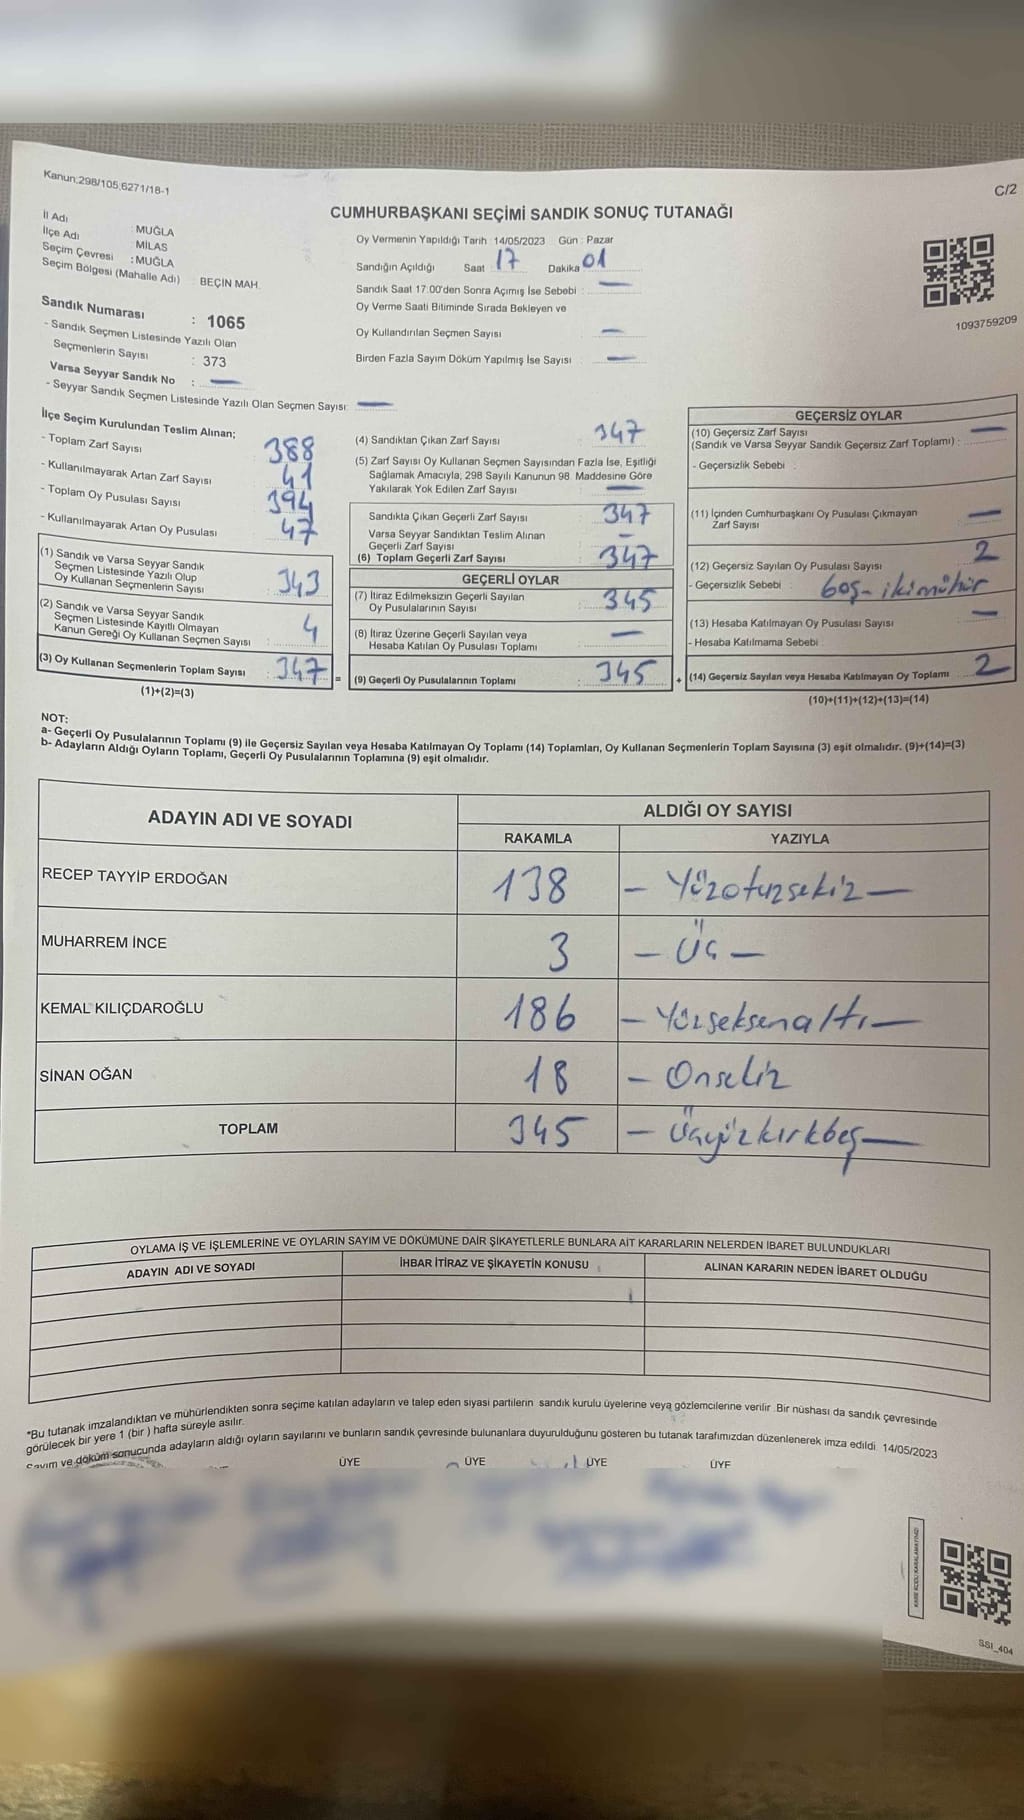 Kanun:298/105,6271/18-1
C/2
CUMHURBAŞKANI SEÇİMİ SANDIK SONUÇ TUTANAĞI
İl Adı : MUĞLA
İlçe Adı : MİLAS
Seçim Çevresi : MUĞLA
Seçim Bölgesi (Mahalle Adı) : BEÇİN MAH.
Sandık Numarası : 1065
- Sandık Seçmen Listesinde Yazılı Olan
Seçmenlerin Sayısı : 373
Varsa Seyyar Sandık No : —
- Seyyar Sandık Seçmen Listesinde Yazılı Olan Seçmen Sayısı: —
Oy Vermenin Yapıldığı Tarih : 14/05/2023 Gün : Pazar
Sandığın Açıldığı Saat : 17 Dakika : 01
Sandık Saat 17:00'den Sonra Açılmış İse Sebebi : —
Oy Verme Saati Bitiminde Sırada Bekleyen ve
Oy Kullandırılan Seçmen Sayısı —
Birden Fazla Sayım Döküm Yapılmış İse Sayısı : —
1093759209
İlçe Seçim Kurulundan Teslim Alınan;
- Toplam Zarf Sayısı 388
- Kullanılmayarak Artan Zarf Sayısı 41
- Toplam Oy Pusulası Sayısı 394
- Kullanılmayarak Artan Oy Pusulası 47
(1) Sandık ve Varsa Seyyar Sandık
Seçmen Listesinde Yazılı Olup
Oy Kullanan Seçmenlerin Sayısı : 343
(2) Sandık ve Varsa Seyyar Sandık
Seçmen Listesinde Kayıtlı Olmayan
Kanun Gereği Oy Kullanan Seçmen Sayısı : 4
(3) Oy Kullanan Seçmenlerin Toplam Sayısı : 347 =
(1)+(2)=(3)
(4) Sandıktan Çıkan Zarf Sayısı 347
(5) Zarf Sayısı Oy Kullanan Seçmen Sayısından Fazla İse, Eşitliği
Sağlamak Amacıyla, 298 Sayılı Kanunun 98. Maddesine Göre
Yakılarak Yok Edilen Zarf Sayısı —
Sandıkta Çıkan Geçerli Zarf Sayısı 347
Varsa Seyyar Sandıktan Teslim Alınan
Geçerli Zarf Sayısı —
(6) Toplam Geçerli Zarf Sayısı : 347
GEÇERLİ OYLAR
(7) İtiraz Edilmeksizin Geçerli Sayılan
Oy Pusulalarının Sayısı : 345
(8) İtiraz Üzerine Geçerli Sayılan veya
Hesaba Katılan Oy Pusulası Toplamı —
(9) Geçerli Oy Pusulalarının Toplamı : 345 +
GEÇERSİZ OYLAR
(10) Geçersiz Zarf Sayısı —
(Sandık ve Varsa Seyyar Sandık Geçersiz Zarf Toplamı) :
- Geçersizlik Sebebi :
(11) İçinden Cumhurbaşkanı Oy Pusulası Çıkmayan
Zarf Sayısı —
(12) Geçersiz Sayılan Oy Pusulası Sayısı 2
- Geçersizlik Sebebi : boş - iki mühür
(13) Hesaba Katılmayan Oy Pusulası Sayısı —
- Hesaba Katılmama Sebebi :
(14) Geçersiz Sayılan veya Hesaba Katılmayan Oy Toplamı 2
(10)+(11)+(12)+(13)=(14)
NOT:
a- Geçerli Oy Pusulalarının Toplamı (9) ile Geçersiz Sayılan veya Hesaba Katılmayan Oy Toplamı (14) Toplamları, Oy Kullanan Seçmenlerin Toplam Sayısına (3) eşit olmalıdır. (9)+(14)=(3)
b- Adayların Aldığı Oyların Toplamı, Geçerli Oy Pusulalarının Toplamına (9) eşit olmalıdır.
ADAYIN ADI VE SOYADI ALDIĞI OY SAYISI
RAKAMLA YAZIYLA
RECEP TAYYİP ERDOĞAN 138 — Yüzotuzsekiz —
MUHARREM İNCE 3 — Üç —
KEMAL KILIÇDAROĞLU 186 — Yüzseksenaltı —
SİNAN OĞAN 18 — Onsekiz
TOPLAM 345 — Üçyüzkırkbeş —
OYLAMA İŞ VE İŞLEMLERİNE VE OYLARIN SAYIM VE DÖKÜMÜNE DAİR ŞİKAYETLERLE BUNLARA AİT KARARLARIN NELERDEN İBARET BULUNDUKLARI
ADAYIN ADI VE SOYADI İHBAR İTİRAZ VE ŞİKAYETİN KONUSU ALINAN KARARIN NEDEN İBARET OLDUĞU
*Bu tutanak imzalandıktan ve mühürlendikten sonra seçime katılan adayların ve talep eden siyasi partilerin sandık kurulu üyelerine veya gözlemcilerine verilir. Bir nüshası da sandık çevresinde
görülecek bir yere 1 (bir) hafta süreyle asılır.
Sayım ve döküm sonucunda adayların aldığı oyların sayılarını ve bunların sandık çevresinde bulunanlara duyurulduğunu gösteren bu tutanak tarafımızdan düzenlenerek imza edildi. 14/05/2023
ÜYE ÜYE ÜYE ÜYE
KARE KODU KARALAMAYINIZ!
SSI_404